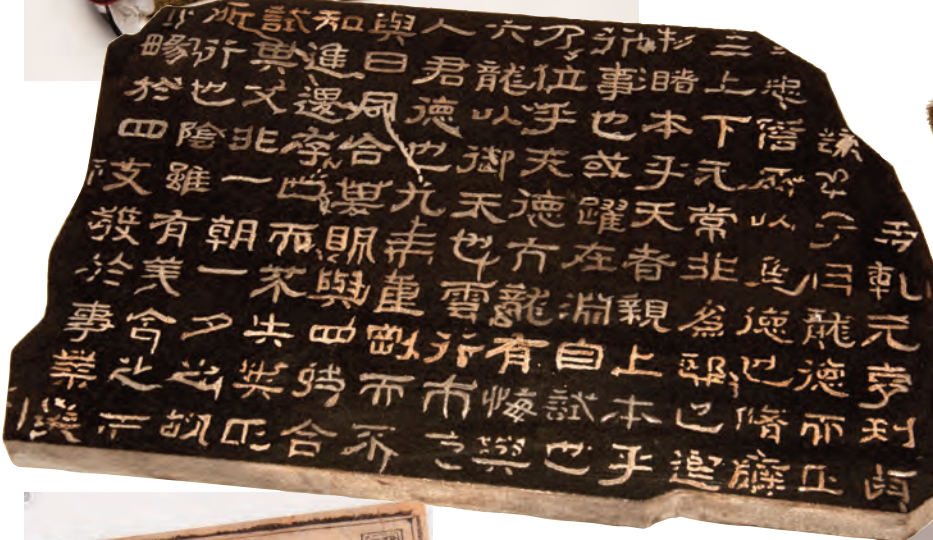 乾元亨利貞
曰龍德而正
忠 所以進德也脩辭
上下无常非為邪也進
睹本乎天者親上本乎
行事也或躍在淵自試也
乃位乎天德亢龍有悔與
六龍以御天也雲行雨
人君德也九三重剛而不
與日月合其明與四時合
知進退存亡而不失其正
試其父非一朝一夕之故
所行也陰雖有美含之
暢於四支發於事業